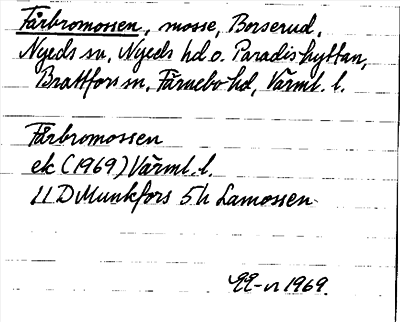 Fårbromossen, mosse, Borserud,
Nyeds sn, Nyeds hd o. Paradishyttan,
Brattfors sn, Färnebo hd, Värml. l.
Fårbromossen
ek (1969) Värml. l.
11 D Munkfors 5h Lamossen
1969